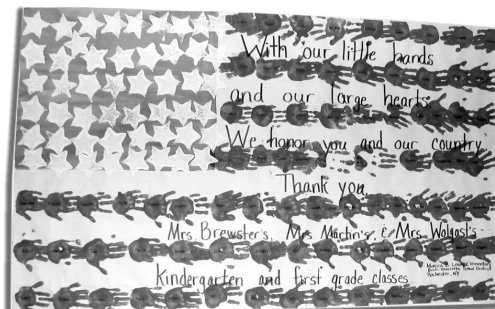 With our little hands
and our large hearts
We honor you and our country
Thank you,
Mrs. Brewster's, Mrs. Martin's, & Mrs. Wolgast's
Kindergarten and first grade classes
Elementary
School District
Rochester, NY